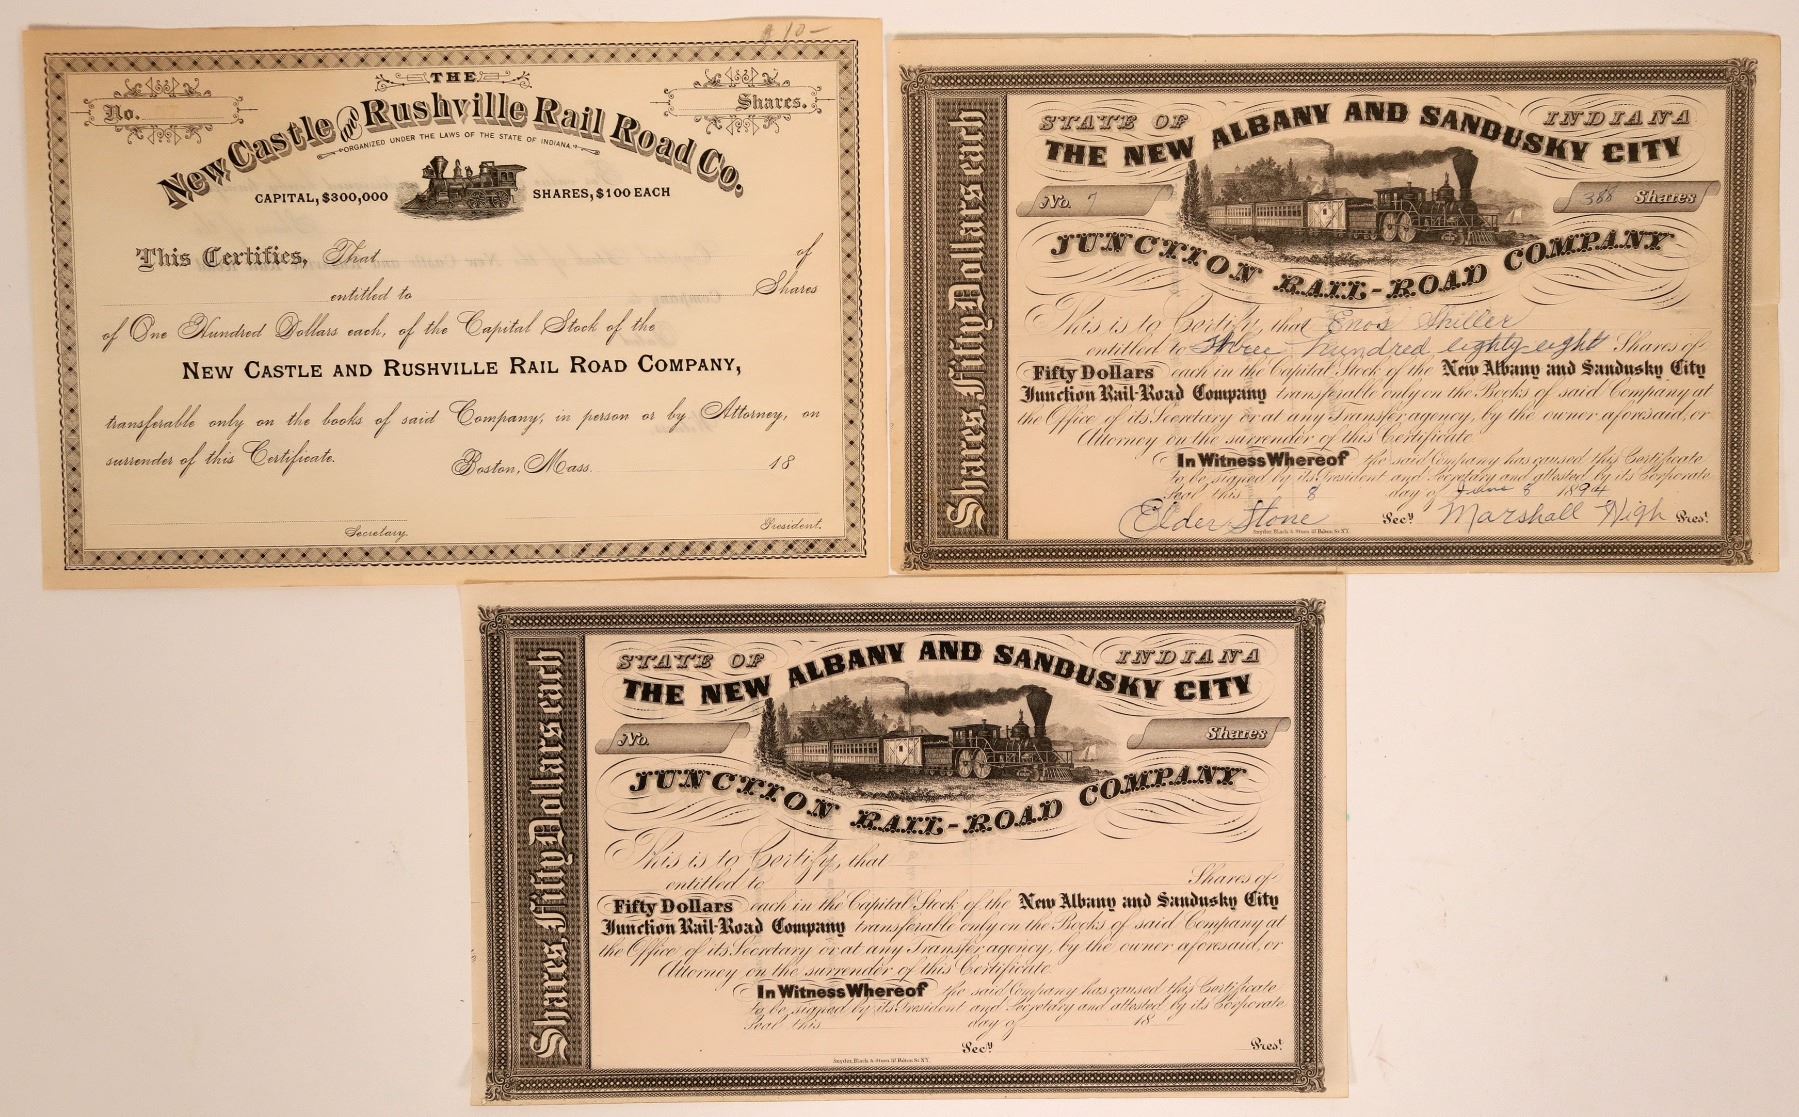 $ 10 —
No.
THE
Shares.
New Castle and Rushville Rail Road Co.
"ORGANIZED UNDER THE LAWS OF THE STATE OF INDIANA."
CAPITAL, $300,000
SHARES, $100 EACH
This Certifies, That of
entitled to Shares
of One Hundred Dollars each, of the Capital Stock of the
NEW CASTLE AND RUSHVILLE RAIL ROAD COMPANY,
transferable only on the books of said Company, in person or by Attorney, on
surrender of this Certificate. Boston, Mass. 18
Secretary.
President.
Shares, Fifty Dollars each
STATE OF INDIANA
THE NEW ALBANY AND SANDUSKY CITY
No. 7
388 Shares
JUNCTION RAIL-ROAD COMPANY
This is to Certify, that Enos Shiller
entitled to three hundred eighty eight Shares of
Fifty Dollars each in the Capital Stock of the New Albany and Sandusky City
Junction Rail-Road Company transferable only on the Books of said Company at
the Office of its Secretary or at any Transfer agency, by the owner aforesaid, or
Attorney on the surrender of this Certificate.
In Witness Whereof the said Company has caused this Certificate
to be signed by its President and Secretary and attested by its Corporate
Seal this 8 day of June 8 1894
Elder Stone Secy Marshall High Prest
Snyder, Black & Sturn
Shares, Fifty Dollars each
STATE OF INDIANA
THE NEW ALBANY AND SANDUSKY CITY
No.
Shares
JUNCTION RAIL-ROAD COMPANY
This is to Certify, that
entitled to Shares of
Fifty Dollars each in the Capital Stock of the New Albany and Sandusky City
Junction Rail-Road Company transferable only on the Books of said Company at
the Office of its Secretary or at any Transfer agency, by the owner aforesaid, or
Attorney on the surrender of this Certificate.
In Witness Whereof the said Company has caused this Certificate
to be signed by its President and Secretary and attested by its Corporate
Seal this day of 18
Secy Prest
Snyder, Black & Sturn